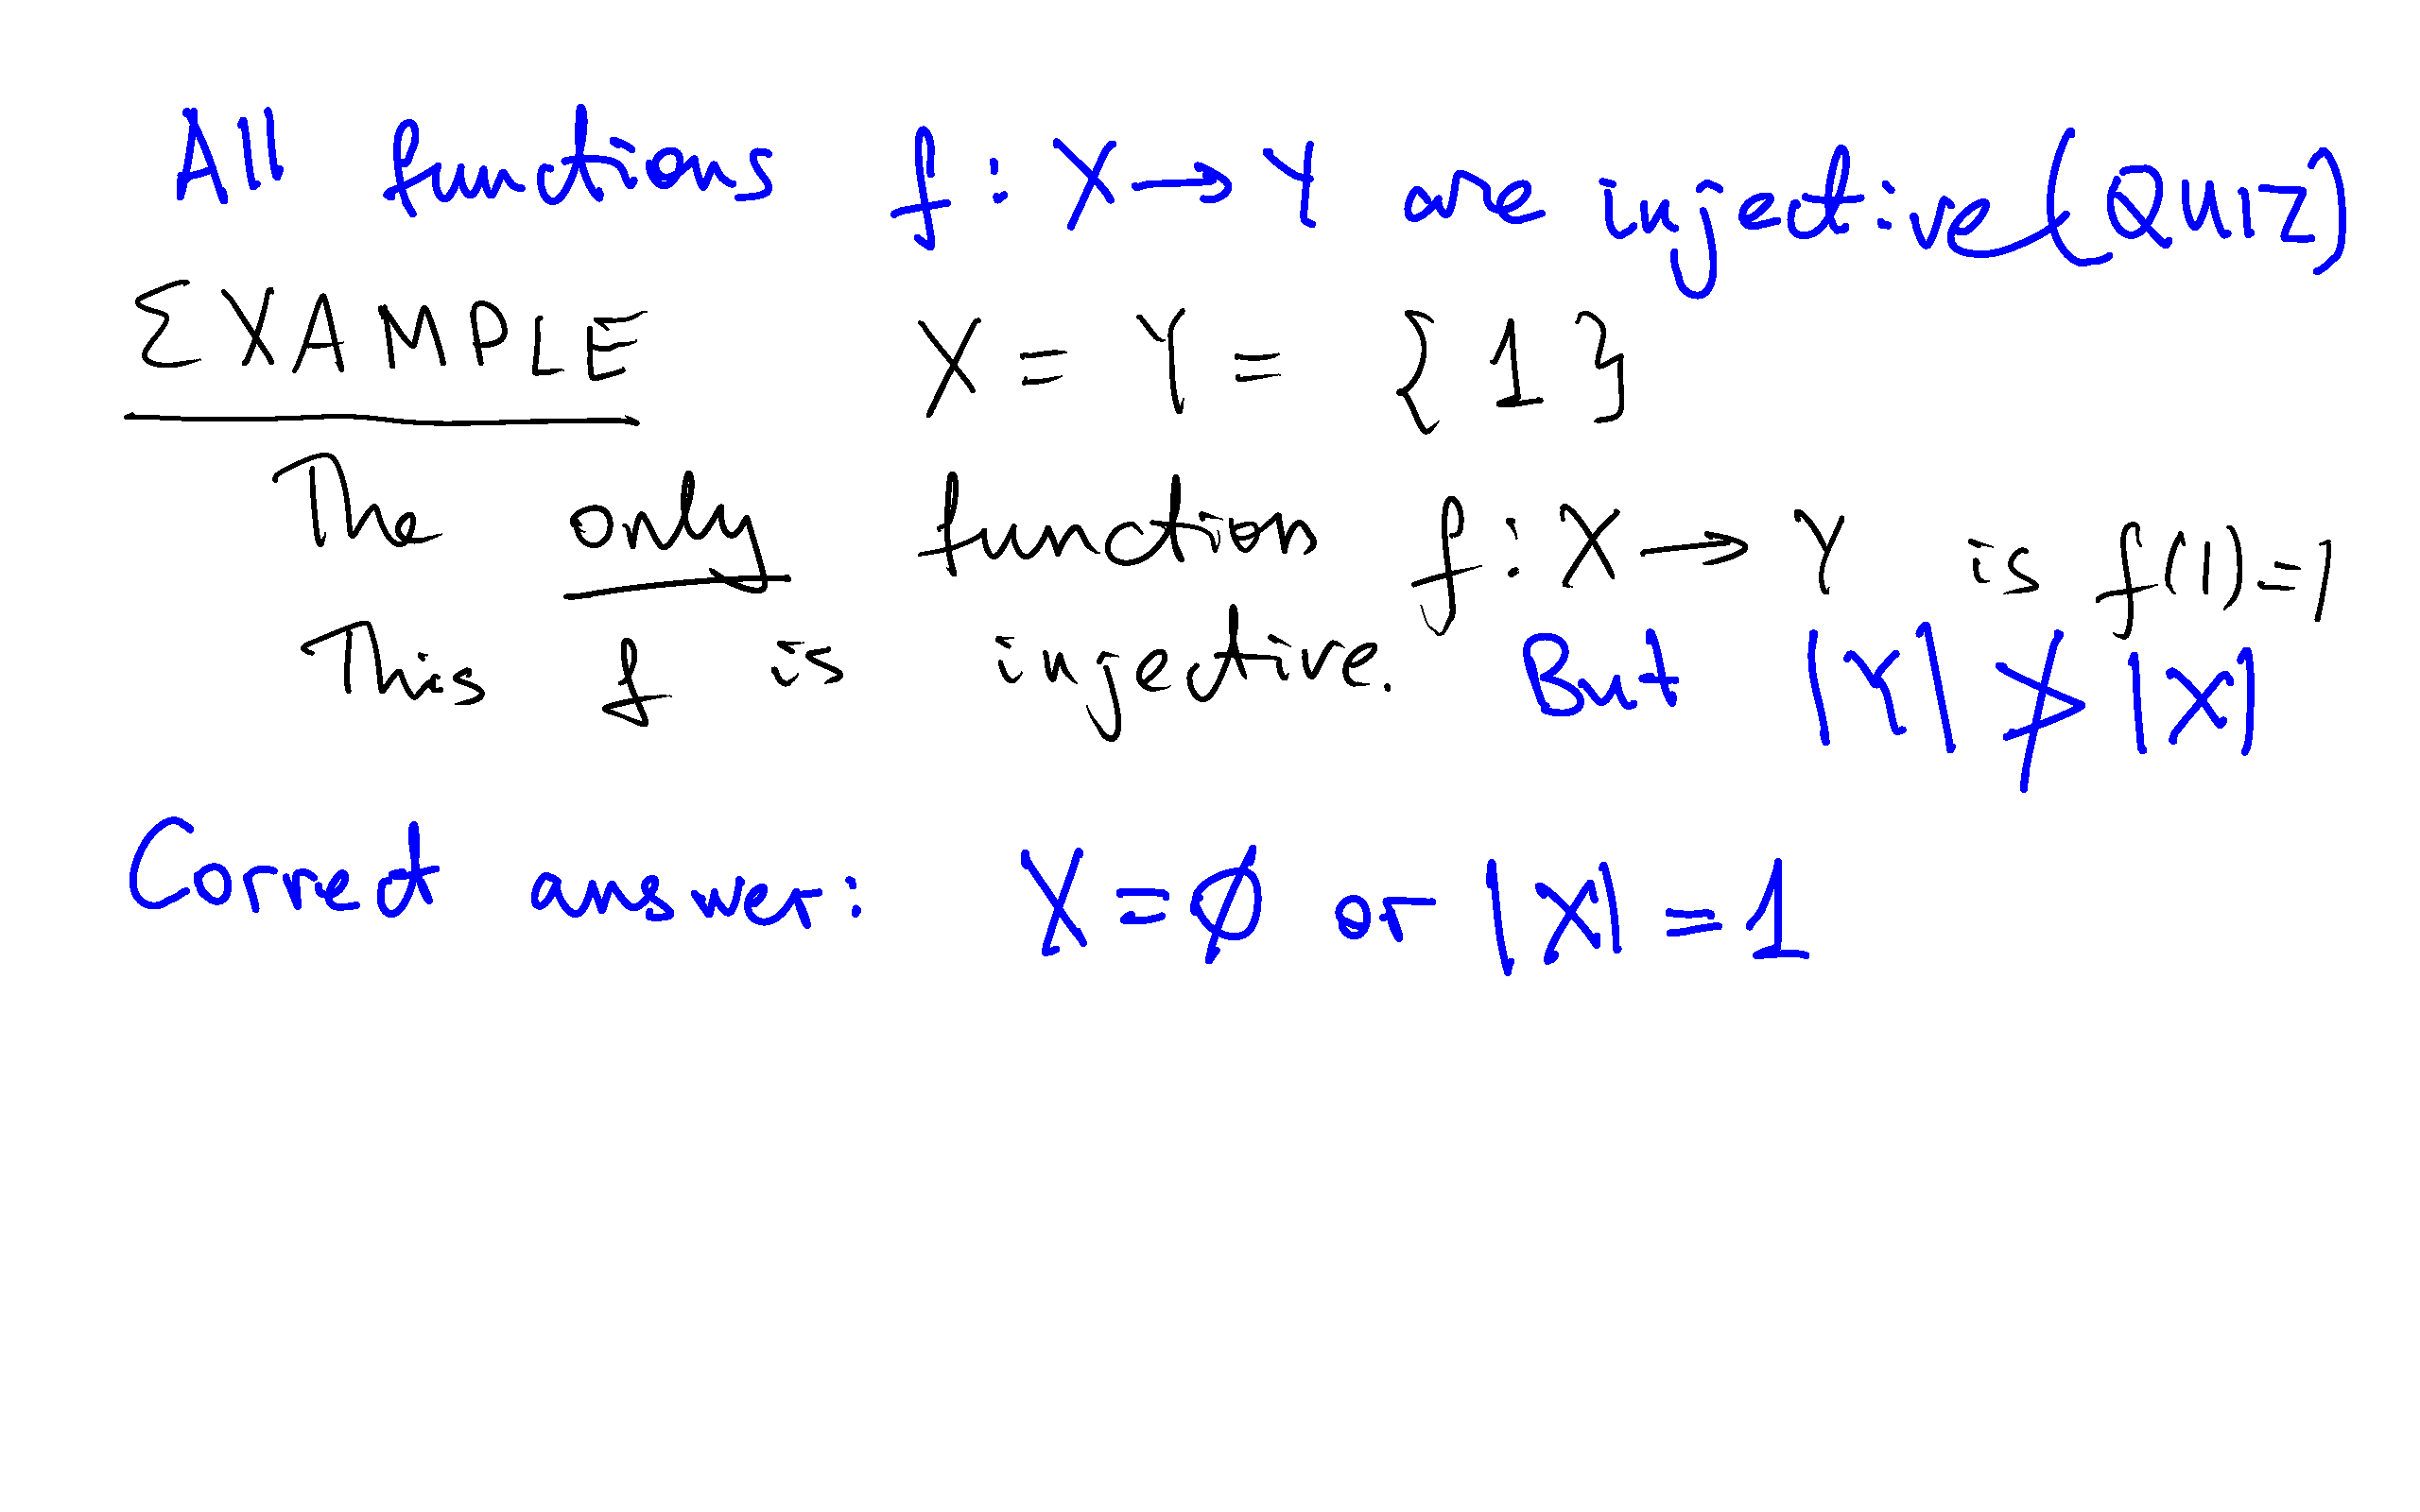 All functions f : X → Y are injective (QUIZ)
EXAMPLE X = Y = {1}
The only function f : X → Y is f(1)=1
This f is injective. But |Y| ≯ |X|
Correct answer: X = ∅ or |X| = 1